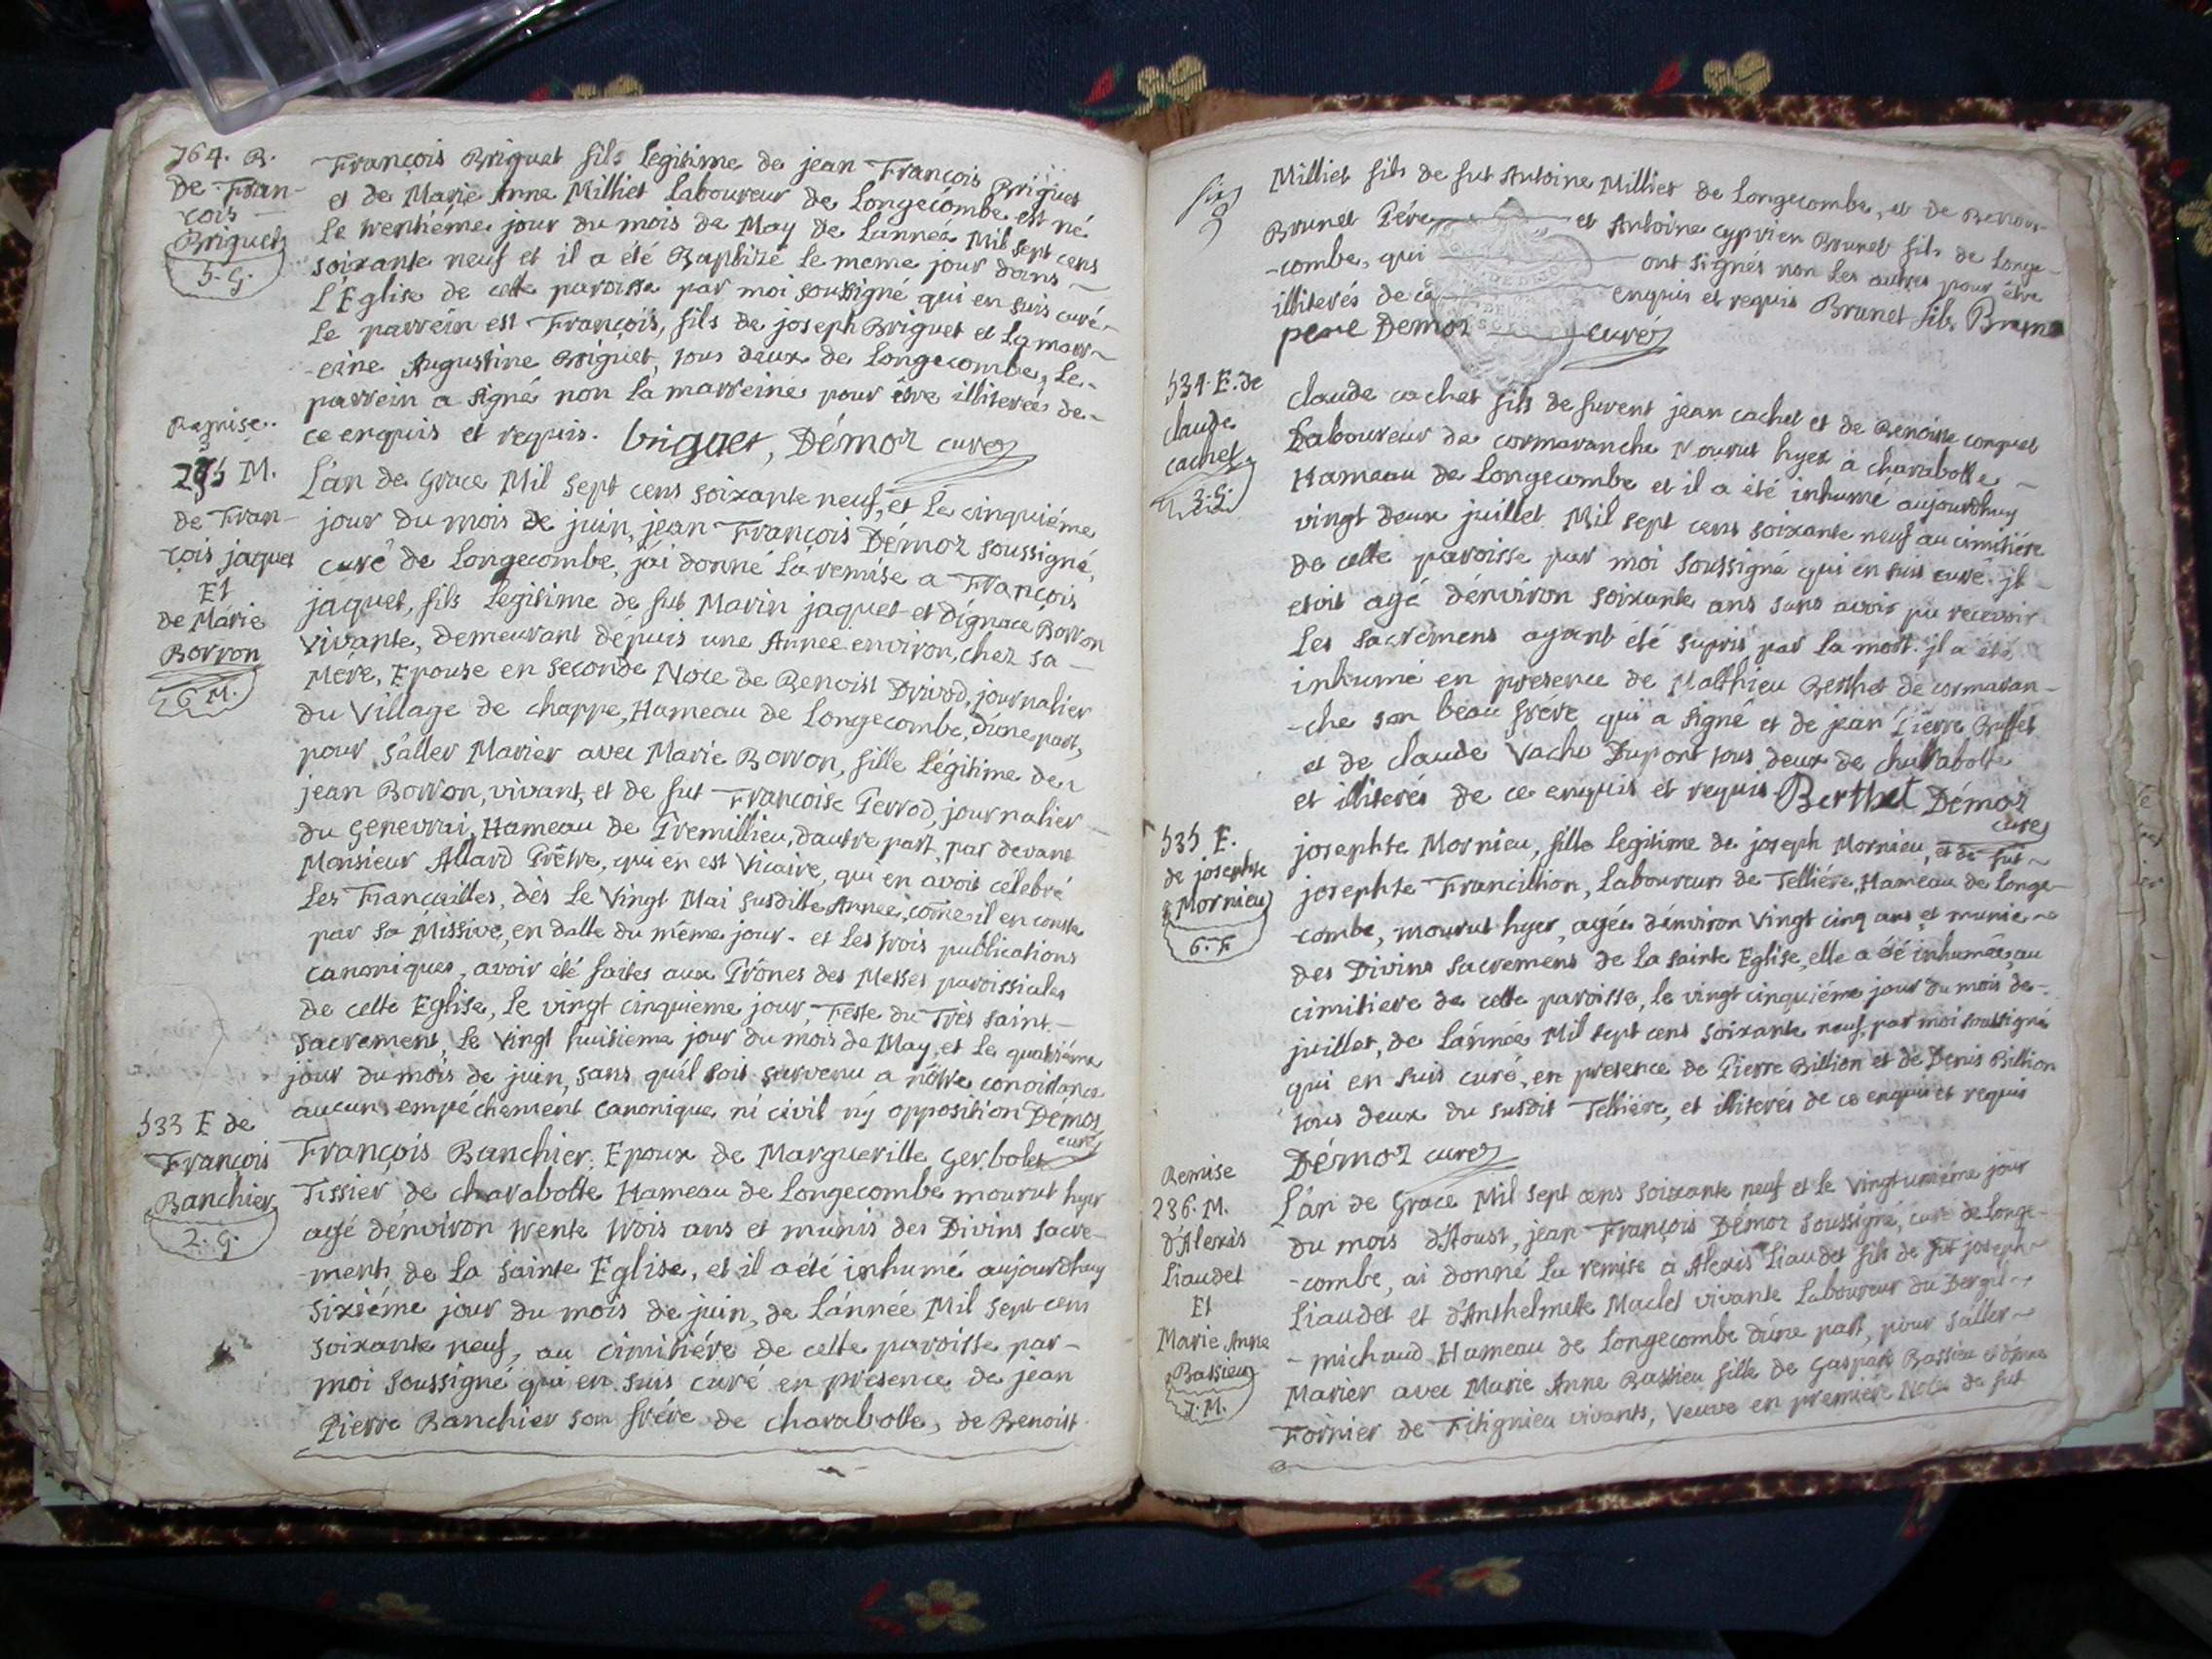 764. B.
de Fran-
cois
Briguet
5. G.
François Briguet fils legitime de jean François Briguet
et de Marie Anne Milliet Laboureur de Longecombe est né
le trentiéme jour du mois de May de Lannee Mil sept cens
soixante neuf et il a été Baptizé le meme jour dans
l'Eglise de cette paroisse par moi soussigné qui en suis curé
le parrein est François, fils de joseph Briguet et La marr-
-eine Augustine Briguet, tous deux de Longecombe, Le-
parrein a signé non la marreine pour être illiterée de-
ce enquis et requis. briguet, Démoz curé
Remise..
235 M.
de Fran-
çois jaquet
Et
de Marie
Borron
6 M.
L'an de Grace Mil sept cens soixante neuf, et le cinquiéme
jour du mois de juin, jean François Démoz soussigné,
curé de Longecombe, j'ai donné la remise a François
jaquet, fils legitime de fut Marin jaquet et d'ignace Borron
vivante, demeurant dépuis une Annee environ, chez sa
Mere, Epouse en seconde Noce de Benoist Drivod, journalier
du Village de chappe, Hameau de Longecombe, d'une part,
pour s'aller Marier avec Marie Borron, fille légitime de
jean Borron, vivant, et de fut Françoise Perrod, journalier
du genevrai, Hameau de Premillieu, d'autre part, par devant
Monsieur Allard Prêtre, qui en est Vicaire, qui en avoit célébré
les Fiançailles, dès le Vingt Mai susditte Année, come il en conste
par sa Missive, en datte du même jour. et les trois publications
canoniques, avoir été faites aux Prônes des Messes paroissiales
de cette Eglise, le vingt cinquieme jour, Feste du Très saint
sacrement, le vingt huitieme jour du mois de May, et le quatriéme
jour du mois de juin, sans qu'il soit survenu a nôtre conoissance
aucuns empéchement canonique ni civil ny opposition Demoz
curé
533 E de
François
Banchier
2. G.
François Banchier, Epoux de Margueritte Gerbolet
Tissier de charabotte Hameau de Longecombe mourut hyer
agé dénviron trente trois ans et munis des Divins sacre-
-ments de la sainte Eglise, et il a été inhumé aujourdhuy
sixiéme jour du mois de juin, de Lánnée Mil sept cens
soixante neuf, au cimitiére de cette paroisse par-
moi soussigné qui en suis curé en présence de jean
Pierre Banchier son frére de charabotte, de Benoist
Milliet fils de fut Antoine Milliet de Longecombe, et de
Brunet Pére et Antoine cyprien Brunet fils de Longe-
-combe, qui ont signés non les autres pour être
illiterés de ce enquis et requis Brunet fils
pere Demoz curé
534. E. de
claude
cachet
3. G.
claude cachet fils de furent jean cachet et de Benoite conquet
Laboureur de cormaranche Mourut hyer à charabotte
Hameau de Longecombe et il a été inhumé aujourdhuy
vingt deux juillet Mil sept cens soixante neuf au cimitiére
de cette paroisse par moi soussigné qui en suis curé. jl
etoit agé dénviron soixante ans sans avoir pu recevoir
les sacrémens ayant été supris par la mort. jl a été
inhumé en presence de Matthieu Berthet de cormaran-
-che son beau frére qui a signé et de jean Pierre Buffet
et de claude Vacho Dupont tous deux de charabotte
et illiterés de ce enquis et requis Berthet Démoz
curé
535 E.
de josephte
Mornieu
6. F
josephte Mornieu, fille legitime de joseph Mornieu, et de fut
josephte Francillion, Laboureurs de Telliére, Hameau de Longe-
-combe, mourut hyer, agée dénviron vingt cinq ans, et munie
des Divins sacremens de la sainte Eglise, elle a été inhumée, au
cimitiere de cette paroisse, le vingt cinquiéme jour du mois de-
juillet, de Lánnée Mil sept cens soixante neuf, par moi soussigné
qui en suis curé, en presence de Pierre Billion et de Denis Billion
tous deux du susdit Telliére, et illiterés de ce enquis et requis
Démoz curé
Remise
236. M.
d'Alexis
Liaudet
Et
Marie Anne
Bassieu
7. M.
L'an de Grace Mil sept cens soixante neuf et le vingtuniéme jour
du mois d'Aoust, jean François Démoz soussigné, curé de Longe-
-combe, ai donné la remise à Alexis Liaudet fils de fut joseph
Liaudet et d'Anthelmette Maclet vivante Laboureur du Dergil-
-michaud Hameau de Longecombe d'une part, pour s'aller
Marier avec Marie Anne Bassieu fille de Gaspard Bassieu et d'Anne
Fornier de Fitignieu vivants, Veuve en premiére Noce de fut